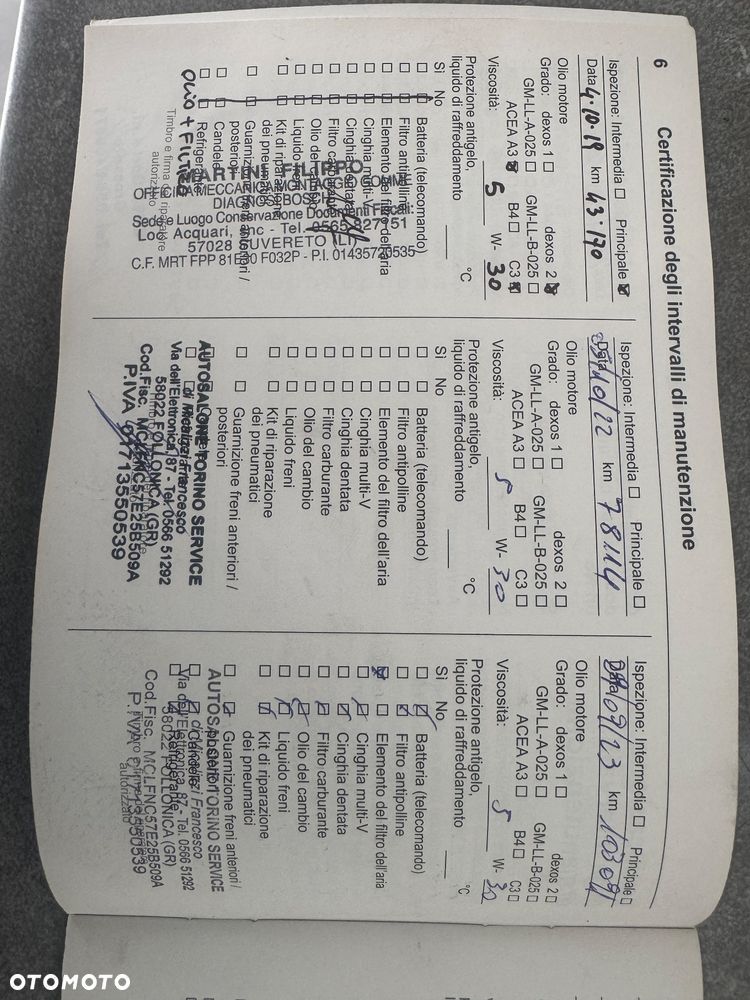 6
Certificazione degli intervalli di manutenzione
Ispezione: Intermedia Principale
Data 4.10.19 km 43.170
Olio motore
Grado: dexos 1 dexos 2
GM-LL-A-025 GM-LL-B-025
ACEA A3 B4 C3
Viscosità: 5 W- 30
Protezione antigelo,
liquido di raffreddamento °C
Sì No
Batteria (telecomando)
Filtro antipolline
Elemento del filtro dell'aria
Cinghia multi-V
Cinghia dentata
Filtro carburante
Olio del cambio
Liquido freni
Kit di riparazione
dei pneumatici
Guarnizione freni anteriori /
posteriori
Candele
Refrigerante
OLIO + FILTRO
Timbro e firma del riparatore
autorizzato
Sede e Luogo Conservazione Documenti
Loc Acquari, snc - Tel. 0565
57028 SUVERETO (LI)
Ispezione: Intermedia Principale
Data /10/22 km 78114
Olio motore
Grado: dexos 1 dexos 2
GM-LL-A-025 GM-LL-B-025
ACEA A3 B4 C3
Viscosità: 5 W- 30
Protezione antigelo,
liquido di raffreddamento °C
Sì No
Batteria (telecomando)
Filtro antipolline
Elemento del filtro dell'aria
Cinghia multi-V
Cinghia dentata
Filtro carburante
Olio del cambio
Liquido freni
Kit di riparazione
dei pneumatici
Guarnizione freni anteriori /
posteriori
AUTOSALONE TORINO SERVICE
di Micalizzi Francesco
Via dell'Elettronica, 87 - Tel. 0566 51292
58022 FOLLONICA (GR)
Cod.Fisc. MCLFNC57E25B509A
P.IVA 01713550539
Ispezione: Intermedia Principale
Data /09/23 km 103091
Olio motore
Grado: dexos 1 dexos 2
GM-LL-A-025 GM-LL-B-025
ACEA A3 B4 C3
Viscosità: 5 W- 30
Protezione antigelo,
liquido di raffreddamento °C
Sì No
Batteria (telecomando)
Filtro antipolline
Elemento del filtro dell'aria
Cinghia multi-V
Cinghia dentata
Filtro carburante
Olio del cambio
Liquido freni
Kit di riparazione
dei pneumatici
Guarnizione freni anteriori /
posteriori
Candele
Refrigerante
AUTOSALONE TORINO SERVICE
di Micalizzi Francesco
Via dell'Elettronica, 87 - Tel. 0566 51292
58022 FOLLONICA (GR)
Cod.Fisc. MCLFNC57E25B509A
P.IVA 01713550539
autorizzato
OTOMOTO